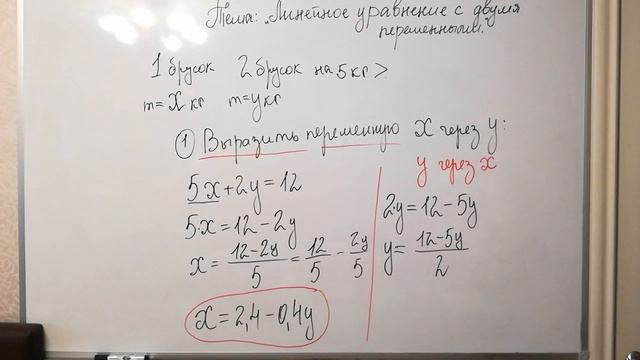 Тема: „Линейное уравнение с двумя
переменными."
1 брусок 2 брусок на 5 кг >
m = x кг m = y кг
① Выразить переменную x через y:
y через x
5x + 2y = 12
5·x = 12 - 2y
x = (12-2y)/5 = 12/5 - 2y/5
x = 2,4 - 0,4y
2·y = 12 - 5y
y = (12-5y)/2